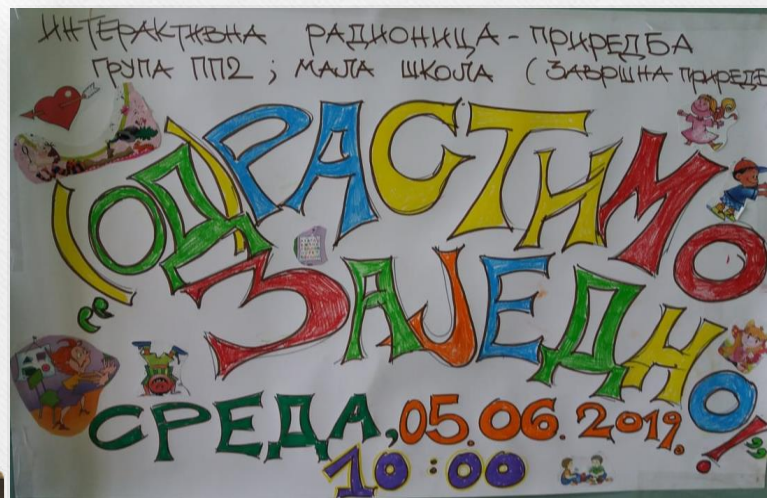 ИНТЕРАКТИВНА РАДИОНИЦА - ПРИРЕДБА
ГРУПА ПП2 ; МАЛА ШКОЛА ( ЗАВРШНА ПРИРЕДБ
„(ОД)РАСТИМО
ЗАЈЕДНО!”
СРЕДА, 05.06.2019.
10:00